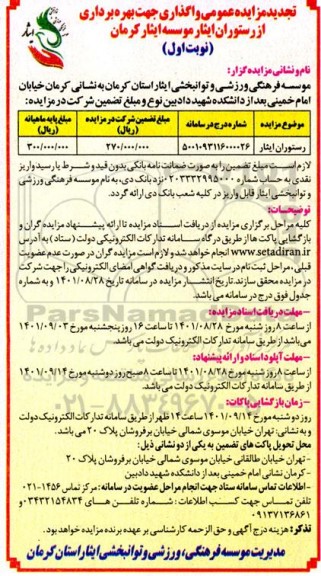 تجدید مزایده عمومی واگذاری جهت بهره برداری
از رستوران ایثار موسسه ایثار کرمان
(نوبت اول)
نام و نشانی مزایده گزار:
موسسه فرهنگی ورزشی و توانبخشی ایثار استان کرمان به نشانی کرمان خیابان
امام خمینی بعد از دانشکده شهید دادبین نوع و مبلغ تضمین شرکت در مزایده:
موضوع مزایده
شماره درج در سامانه
مبلغ تضمین شرکت در مزایده (ریال)
مبلغ پایه ماهیانه (ریال)
رستوران ایثار
۵۰۰۱۰۹۳۱۱۶۰۰۰۰۲۶
۲۷۰/۰۰۰/۰۰۰
۳۰۰/۰۰۰/۰۰۰
لازم است مبلغ تضمین را به صورت ضمانت نامه بانکی بدون قید و شرط یا رسید واریز
نقدی به حساب شماره ۰۲۰۳۳۳۲۹۹۵۰۰۰ نزد بانک دی، به نام موسسه فرهنگی ورزشی
و توانبخشی ایثار قابل واریز در کلیه شعب بانک دی ارائه گردد.
توضیحات:
کلیه مراحل برگزاری مزایده از دریافت اسناد مزایده تا ارائه پیشنهاد مزایده گران و
بازگشایی پاکت ها از طریق درگاه سامانه تدارکات الکترونیکی دولت (ستاد) به آدرس
www.setadiran.ir انجام خواهد شد و لازم است مزایده گران در صورت عدم عضویت
قبلی، مراحل ثبت نام در سایت مذکور و دریافت گواهی امضای الکترونیکی را جهت شرکت
در مزایده محقق سازند. تاریخ انتشار مزایده در سامانه تاریخ ۱۴۰۱/۰۸/۲۸ و به شماره
جدول فوق درج در سامانه می باشد.
- مهلت دریافت اسناد مزایده:
از ساعت ۸ روز شنبه مورخ ۱۴۰۱/۰۸/۲۸ تا ساعت ۱۶ روز پنجشنبه مورخ ۱۴۰۱/۰۹/۰۳
می باشد از طریق سامانه تدارکات الکترونیک دولت می باشد.
- مهلت آپلود اسناد و ارائه پیشنهاد:
از ساعت ۸ روز شنبه مورخ ۱۴۰۱/۰۸/۲۸ تا ساعت ۸ صبح روز دوشنبه مورخ ۱۴۰۱/۰۹/۱۴
از طریق سامانه تدارکات الکترونیک دولت می باشد.
- زمان بازگشایی پاکات:
روز دوشنبه مورخ ۱۴۰۱/۰۹/۱۴ ساعت ۱۴ ظهر از طریق سامانه تدارکات الکترونیک دولت
و به نشانی: تهران خیابان موسوی شمالی خیابان برفروشان پلاک ۲۰ می باشد.
محل تحویل پاکت های تضمین به یکی از دو نشانی ذیل:
- تهران خیابان طالقانی خیابان موسوی شمالی خیابان برفروشان پلاک ۲۰
- کرمان نشانی امام خمینی بعد از دانشکده شهید دادبین
- اطلاعات تماس سامانه ستاد جهت انجام مراحل عضویت در سامانه: مرکز تماس ۱۴۵۶-۰۲۱
تلفن تماس جهت کسب اطلاعات: شماره تلفن های ۰۳۴۳۲۱۵۴۸۳۴ و
۰۹۱۳۷۱۳۶۸۶۱
تذکر: هزینه درج آگهی و حق الزحمه کارشناسی بر عهده برنده مزایده خواهد بود.
مدیریت موسسه فرهنگی، ورزشی و توانبخشی ایثار استان کرمان